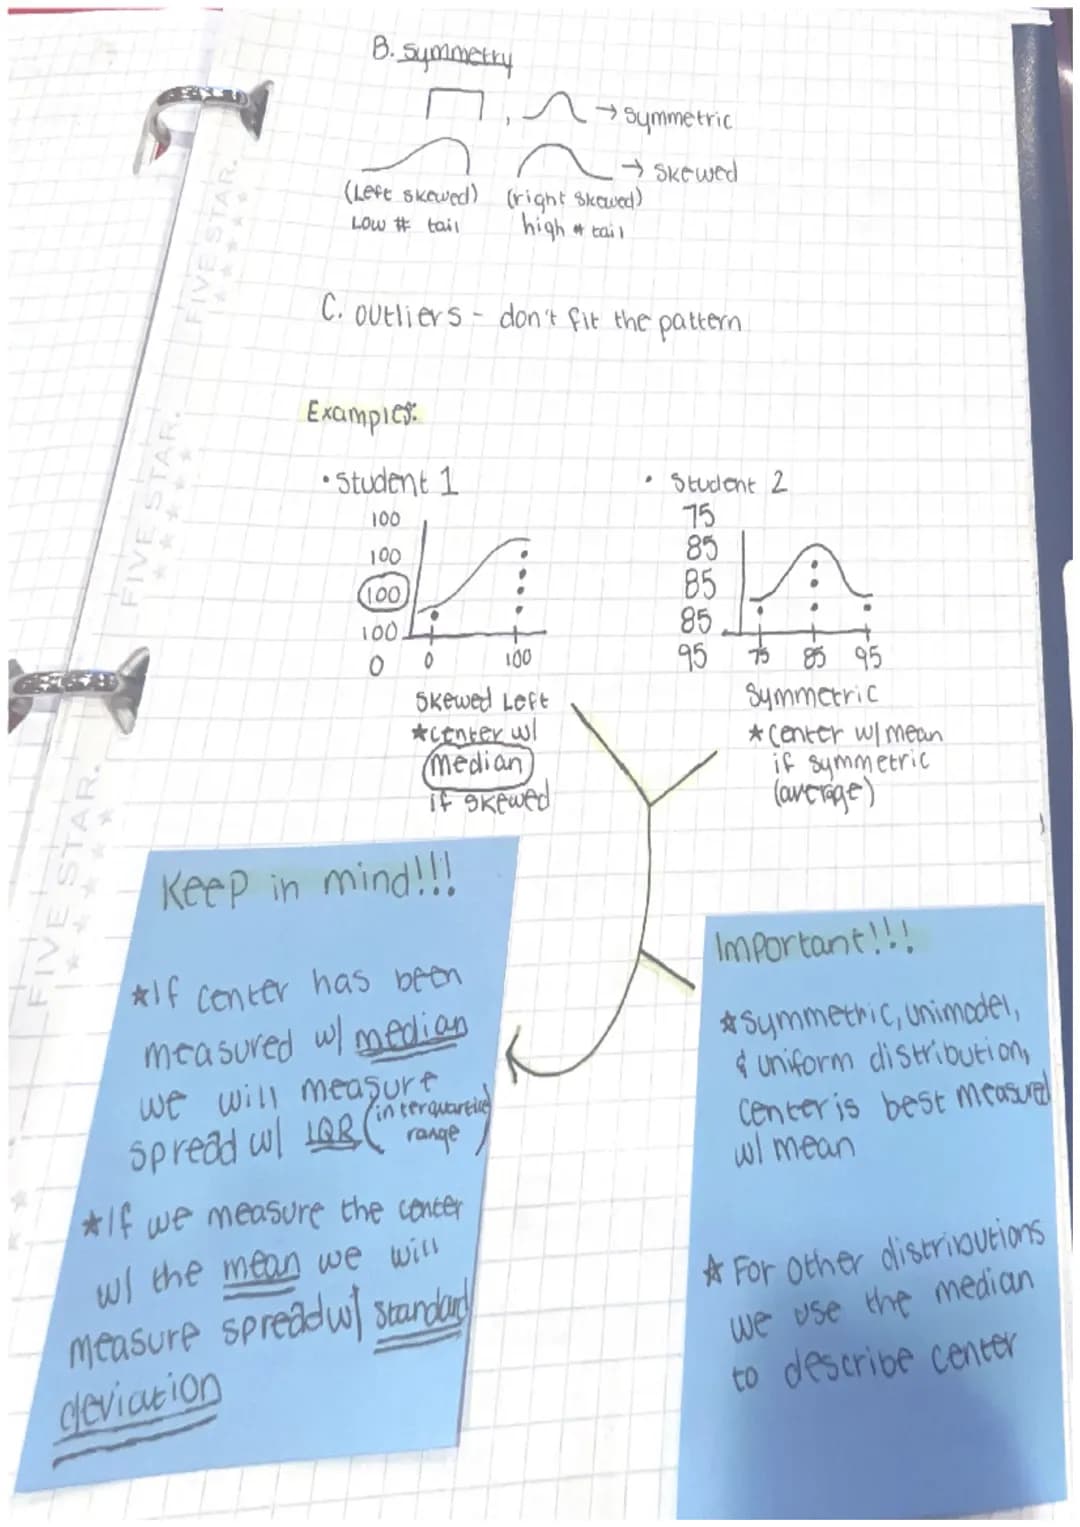 B. Symmetry
, → symmetric
→ skewed
(Left skewed) (right skewed)
Low # tail high # tail
C. outliers - don't fit the pattern
Examples:
• Student 1
100
100
100
100
0
0 100
Skewed Left
*center w/
median
if skewed
• Student 2
75
85
85
85
95
75 85 95
Symmetric
*center w/ mean
if symmetric
(average)
Keep in mind!!!
*If center has been
measured w/ median
we will measure
spread w/ IQR (interquartile
range)
*If we measure the center
w/ the mean we will
measure spread w/ standard
deviation
Important!!!
*Symmetric, unimodel,
& uniform distribution,
center is best measured
w/ mean
* For other distributions
we use the median
to describe center
FIVE STAR.
FIVE STAR.
FIVE STAR.